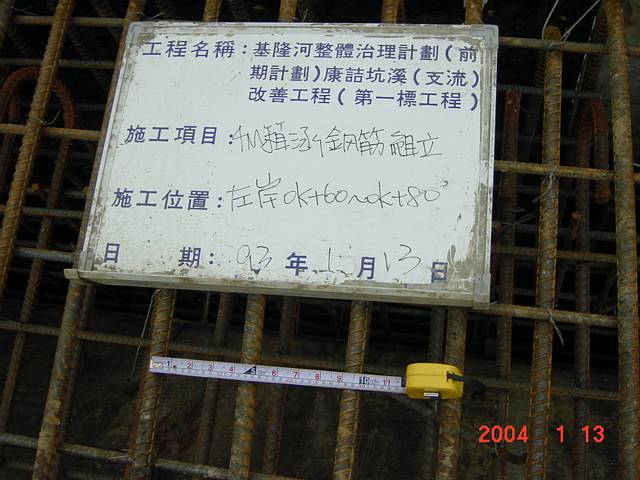 工程名稱：基隆河整體治理計劃（前
期計劃）康誥坑溪（支流）
改善工程（第一標工程）
施工項目：4M箱涵鋼筋組立
施工位置：左岸0k+60~0k+80
日期：93年1月13日
1 2 3 4 5 6 7 8 9 10 11
2004 1 13